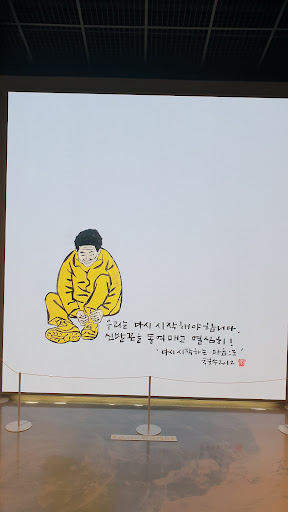 우리는 다시 시작해야 합니다.
신발끈을 동여매고 열심히!
'다시 시작하는 마음으로'
철수2012